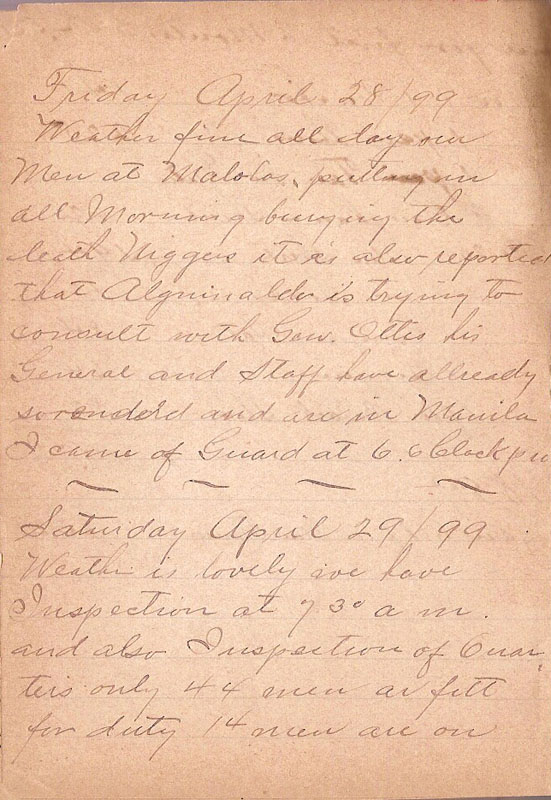 Friday April 28/99
Weather fine all day our
Men at Malolos, putting in
all Morning burying the
death Niggers it is also reported
that Alguinaldo is trying to
consult with Gov. Ottis his
General and Staff have allready
soronderd and are in Manila
I came of Guard at 6. oClock pm
Saturday April 29/99
Weather is lovely we have
Inspection at 7 30 a m.
and also Inspection of Quar
ters only 44 men ar fitt
for duty 14 men are on